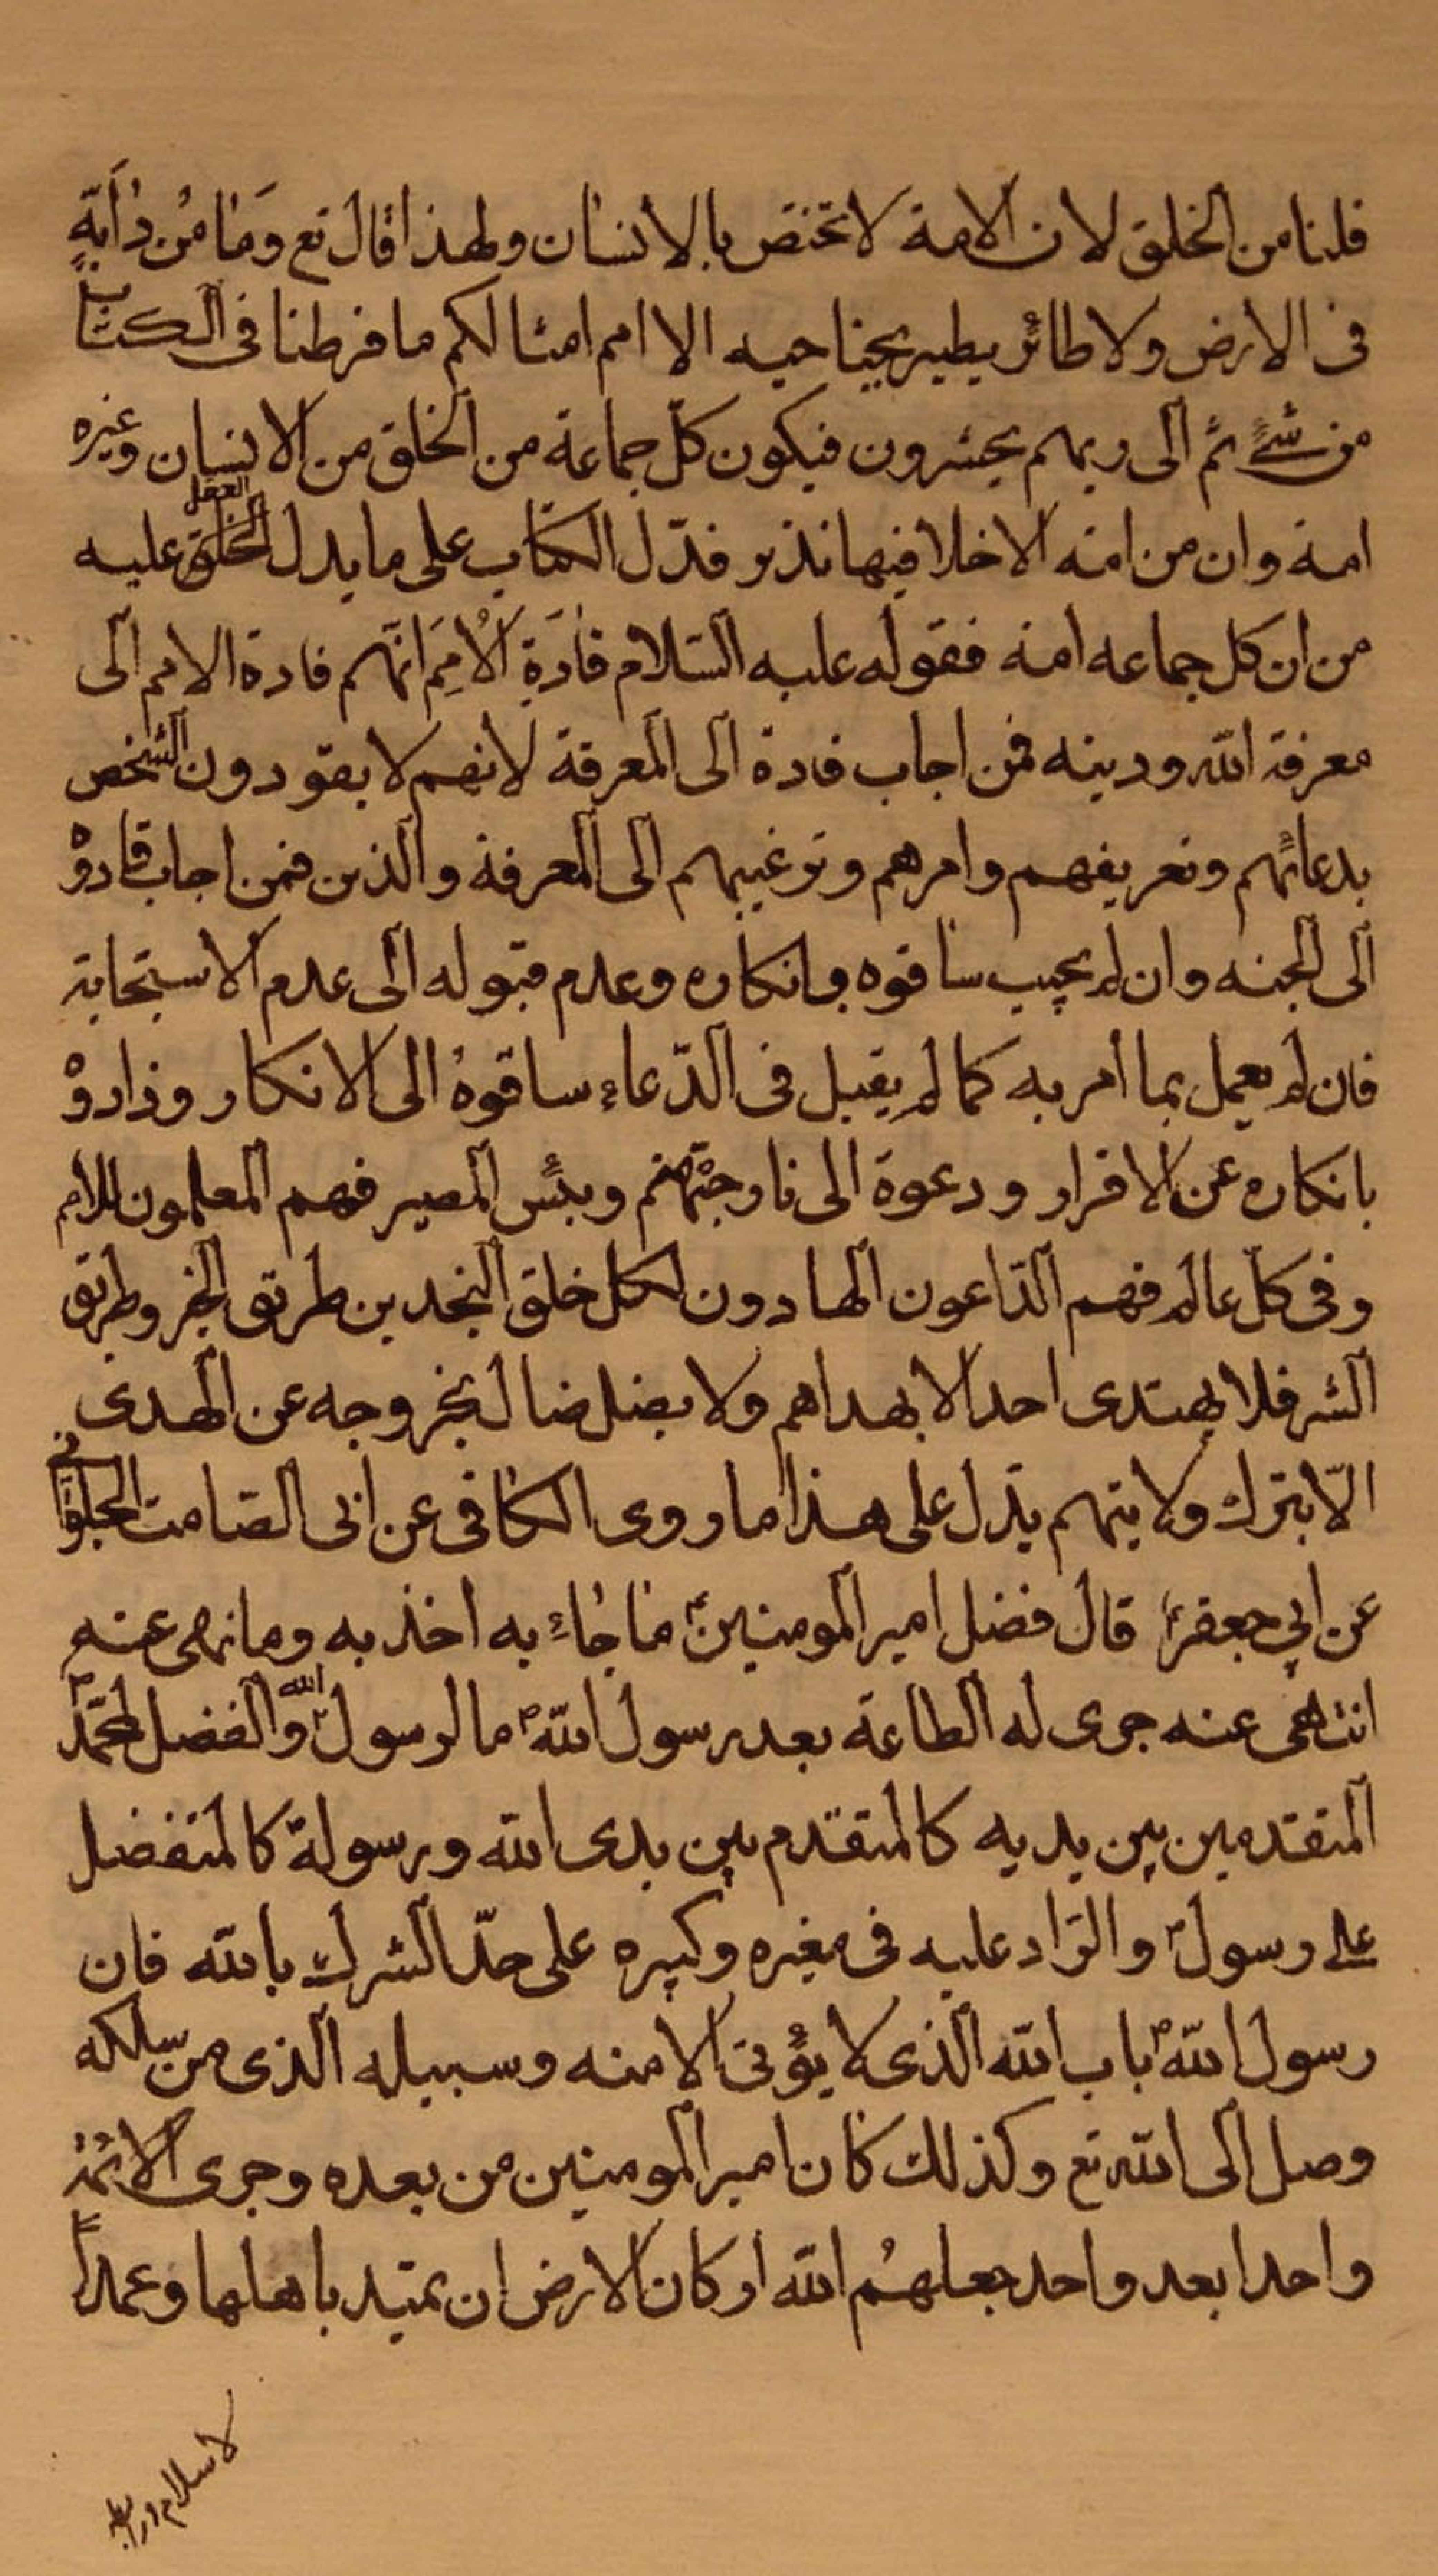 قلنا من الخلق لان الامة لا تختص بالانسان ولهذا قال تع وَمَا مِن دَابَّةٍ
فى الارض ولا طائر يطير بجناحيه الا امم امثالكم ما فرطنا فى الكتاب
من شئ ثم الى ربهم يحشرون فيكون كلّ جماعة من الخلق من الانسان وغيره
امة وان من امة الا خلا فيها نذير فدّل الكتاب على ما يدل الخلق العقل عليه
من ان كل جماعه امة فقوله عليه السّلام قَادَةِ الاُمَمِ انّهم قادة الامم الى
معرفة الله ودينه فمن اجاب قادة الى المعرفة لانهم لا يقودون الشخص
بدعائهم وتعريفهم وامرهم وترغيبهم الى المعرفة والذين فمن اجاب قادوْ
الى الجنه وان لم يجيب ساقوه بانكاره وعدم قبوله الى عدم الاستجابة
فان لم يعمل بما امر به كما لم يقبل فى الدّعاء ساقوهُ الى الانكار وذادوْ
بانكاره عن الاقرار ودعوة الى نار جهنّم وبئس المصير فهم المعلمون للامم
وفى كلّ عالم فهم الدّاعون الهادون لكل خلق النجدين طريق الخير وطريق
الشر فلا يهتدى احد الا بهداهم ولا يضل ضال بخروجه عن الهدى
الّا بترك ولايتهم يدّل على هذا ما روى الكافى عن ابى الصّامت الحلوانى
عن ابي جعفرؑ قال فضل امير المومنينؑ ما جاء به اخذ به وما نهى عنه
انتهى عنه جرى له الطاعة بعد رسول اللهؐ ما لرسول اللهؐ والفضل لمحمّدؐ
المتقدمين بين يديه كالمتقدم بين يدى الله ورسولة كالمتفضل
على رسولؐ والرّاد عليه فى صغيره وكبيره على حدّ الشرك بالله فان
رسول اللهؐ باب الله الذى لا يؤتى الا منه وسبيله الذى من سلكه
وصل الى الله تع وكذلك كان امير المومنين من بعده وجرى الائمة
واحدا بعد واحد جعلهُم الله اركان الارض ان تميد باهلها وعمداً